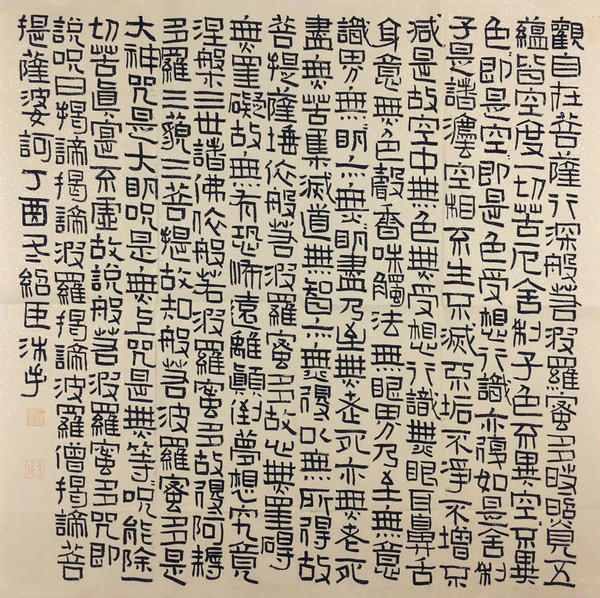 觀自在菩薩行深般若波羅蜜多時照見五
蘊皆空度一切苦厄舍利子色不異空不異
色即是空即是色受想行識亦復如是舍利
子是諸法空相不生不滅不垢不淨不增不
減是故空中無色無受想行識無眼耳鼻舌
身意無色聲香味觸法無眼界乃至無意
識界無明亦無明盡乃至無老死亦無老死
盡無苦集滅道無智亦無得以無所得故
菩提薩埵依般若波羅蜜多故心無罣礙
無罣礙故無有恐怖遠離顛倒夢想究竟
涅槃三世諸佛依般若波羅蜜多故得阿耨
多羅三藐三菩提故知般若波羅蜜多是
大神咒是大明咒是無上咒是無等咒能除一
切苦真實不虛故說般若波羅蜜多咒即
說呪曰揭諦揭諦波羅揭諦波羅僧揭諦菩
提薩婆訶 丁酉冬紹臣沐手